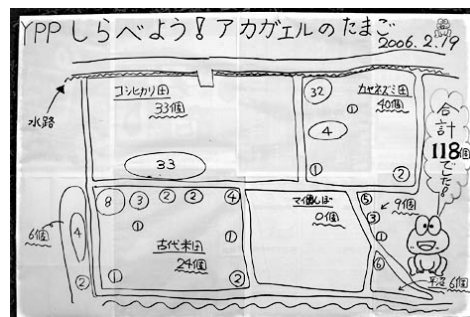 YPP しらべよう！アカガエルのたまご
2006.2.19
水路
コシヒカリ田
33個
33
カヤネズミ田
40個
32
①
4
①
②
合計
118個
でした。
8
③
②
②
④
①
①
古代米田
24個
①
②
6個
4
②
0個
⑤
9個
③
①
⑥
6個